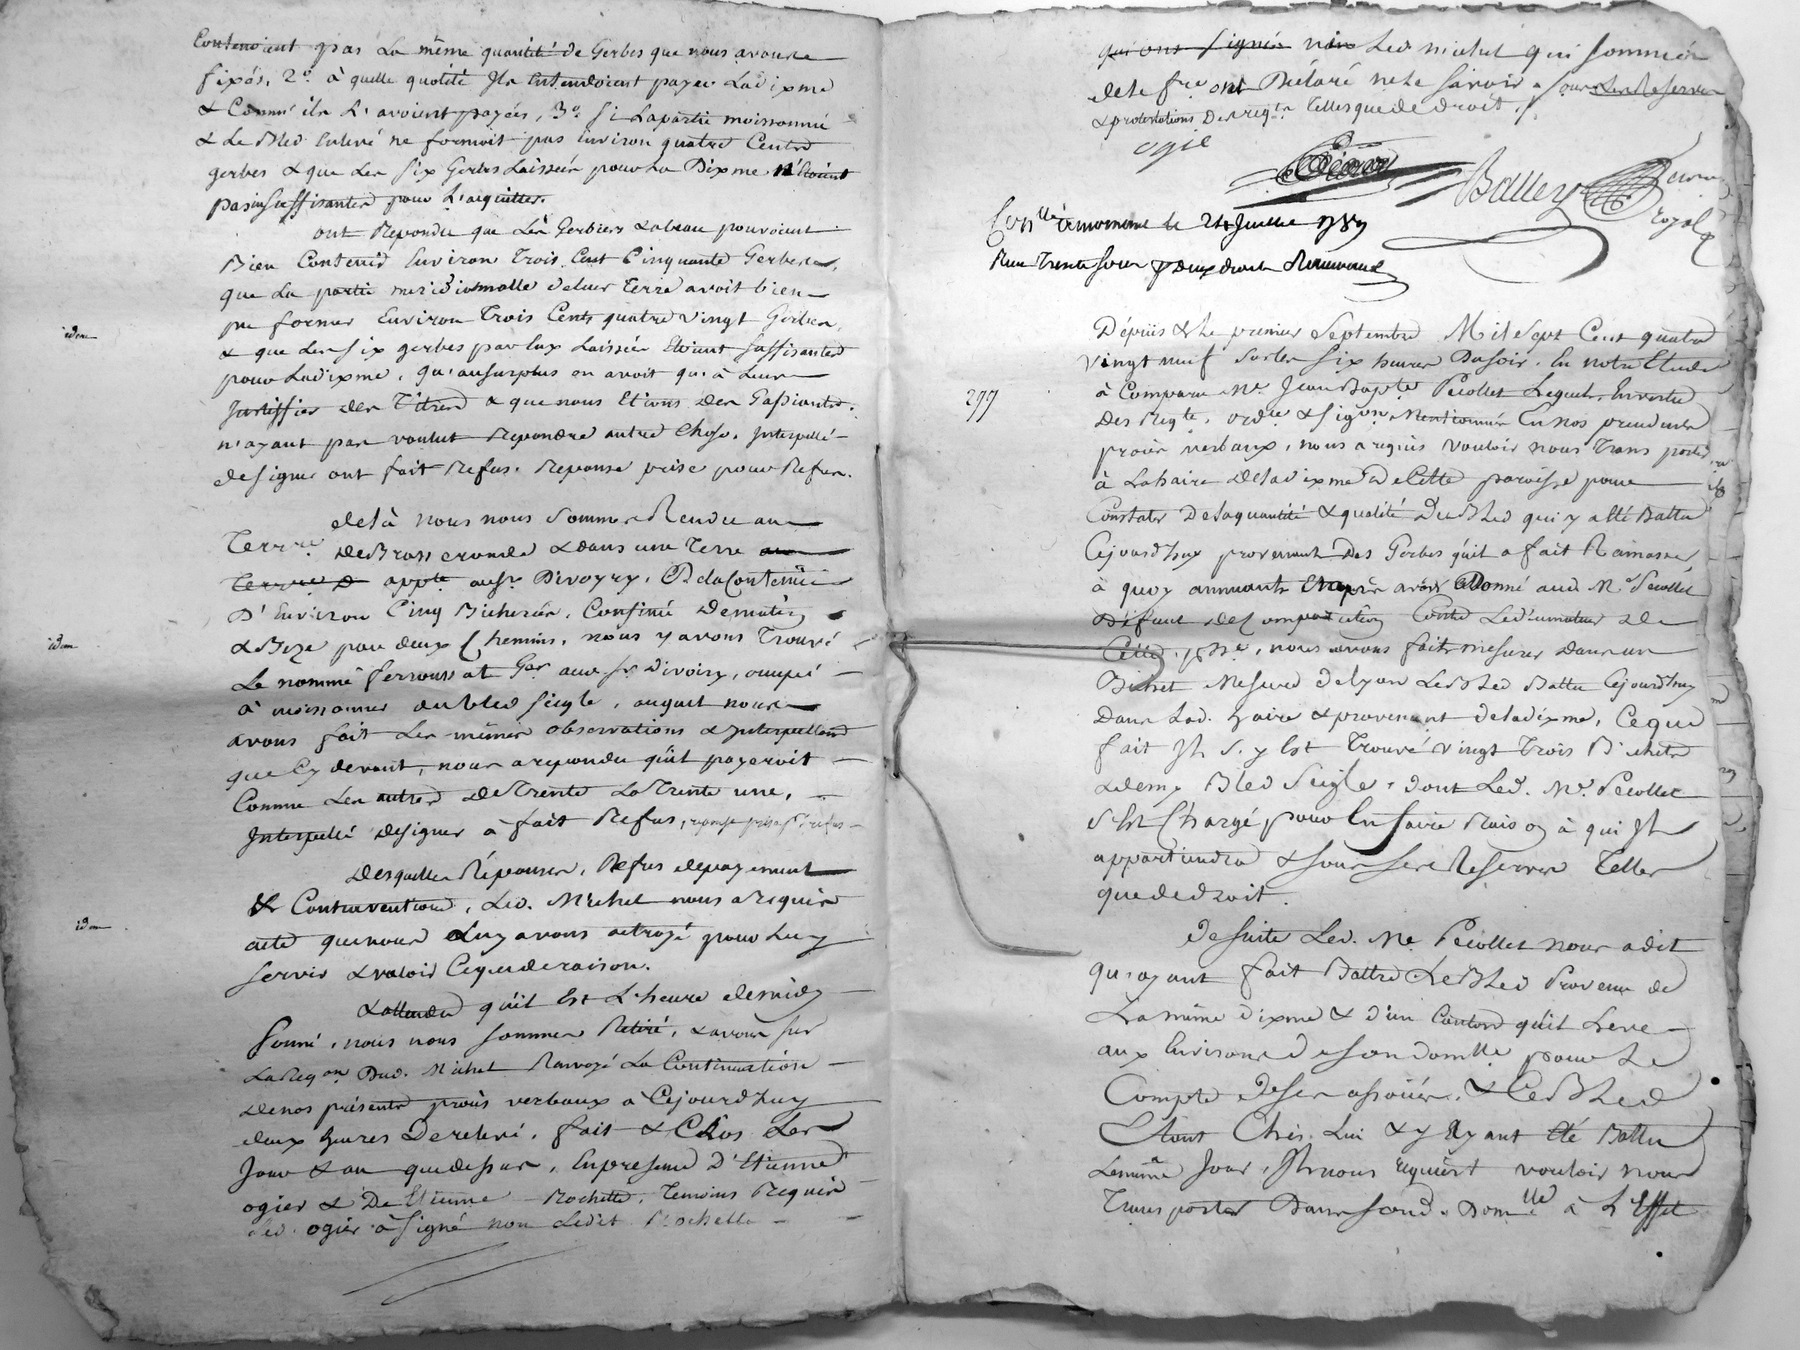 Contenoient pas La même quantité de Gerbes que nous avons
fixés, 2.° à quelle quotité Ils Entendoient payer Ladixme
& Comm' ils L'avoient payées, 3.° Si Lapartie moissonnée
& Le Bled Enlevé ne formoit pas Environ quatre Cents
gerbes & que Les Six Gerbes Laissées pour La Dixme N'Etoient
pas insuffisantes pour L'aquitter.
ont Repondu que Les Gerbiers pouvoient
Bien Contenir Environ Trois Cent Cinquante Gerbes,
que La partie meridionnalle delueur Terre avoit bien
pu former Environ Trois Cents quatre vingt Gerbes,
idem
& que Les six gerbes par Eux Laissées Etoient Suffisantes
pour Ladixme, qu'ausurplus on avoit qu'à Leur
Justiffier des Titres & que nous Etions des
n'ayant pas voulut Repondre autre Chose. Interpellé
designer ont fait Refus. Reponse prise pour Refus.
delà nous nous Sommes Rendu au
Terre de & dans une Terre
appte au Sr Divoyry, De la Contenüe
D'Environ Cinq Bicherées, Confinée De matin
idem
& Bize par deux Chemins, nous y avons Trouvé
Le nommé ferroussat Ger au Sr Divoiry, occupé
à moissonner du bled seigle, auquel nous
avons fait Les mêmes observations & Interpellations
que Cy devant, nous a repondu qu'il payeroit
Comme Les autres De Trente La Trente une,
Interpellé designer à fait Refus, reponse prise pr Refus
Desquelles Réponses, Refus depayement
& Contraventions, Led. Michel nous a Requis
idem
acte que nous Luy avons octroyé pour Luy
servir & valoir Ceque de raison.
& attendu qu'il Est L'heure demidy
Sonné, nous nous sommes Retiré, & avons sur
La Reqon Dud. Michel Renvoyé La Continuation
de nos présents procès verbaux à Cejourd'huy
deux heures De relevé. fait & Clos Les
Jour & an que dessus, En presence D'Etienne
ogier & De Etienne Rochette, Temoins Requis
Led. ogier à Signé non Ledit Rochette
qui ont Signés non Led. michel qui Sommés
de le fre ont Déclaré ne le Savoir & sous Les Reserves
& protestations De Telles que de droit.
ogié
Balley
royal
Conlle le 24 Juillet 1789
Reçu Trente Sous
Dépuis & Le premier Septembre Mil Sept Cent quatre
vingt neuf Surles Six heures Du Soir. En notre Etude
299
à Comparu Me. Jean Bapte Pécollet Lequel, En vertu
des Reqte. ordce & Sigon Mentionnés En nos precedents
procès verbaux, nous a requis vouloir nous Transporter
à Lahaire de ladixme de Cette paroisse pour
Constater De la quantité & qualité Du Bled qui y a Eté Battu
Cejourd'huy provenant Des Gerbes qu'il a fait Ramasser,
à quoy annuants Et après avoir Donné aud. Me. Pecollet
Défaut de Comparution Contre Led. de
Cette psse, nous avons fait mesurer dans un
Bichet Mesure de Lyon Le Bled Battu Cejourd'huy
Dans Lad. haire & provenant de ladixme, Ceque
fait Il S'y Est Trouvé vingt Trois Bichets
& demy Bled Seigle, dont Led. Me. Pecollet
S'Est Chargé pour En faire Raison à qui Il
appartiendra & Sous Ses Reserves Telles
que de droit.
De Suite Led. Me. Pecollet nous a dit
qu'ayant fait Battre Le Bled Provenu de
La même dixme & d'un Canton qu'il Leve
aux Environs de son domlle pour Le
Compte de Ses associés, & Le Bled
Etant Chés Lui & y ayant Eté Battu
Le même Jour, Il nous requiert vouloir nous
Transporter Dans sond. Domlle à L'Effet